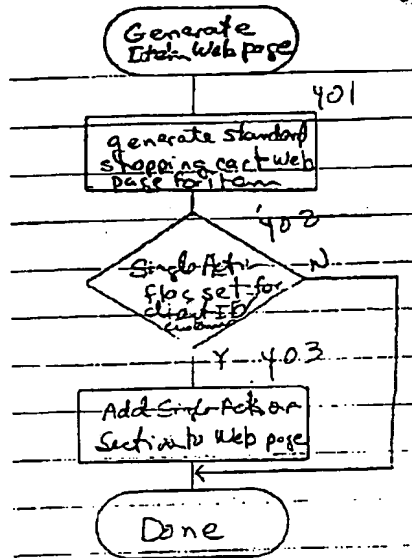 Generate
Item Web page
401
generate standard
shopping cart Web
page for item
402
Single Action
flag set for
client ID
customer
N
Y
403
Add Single Action
Section to Web page
Done